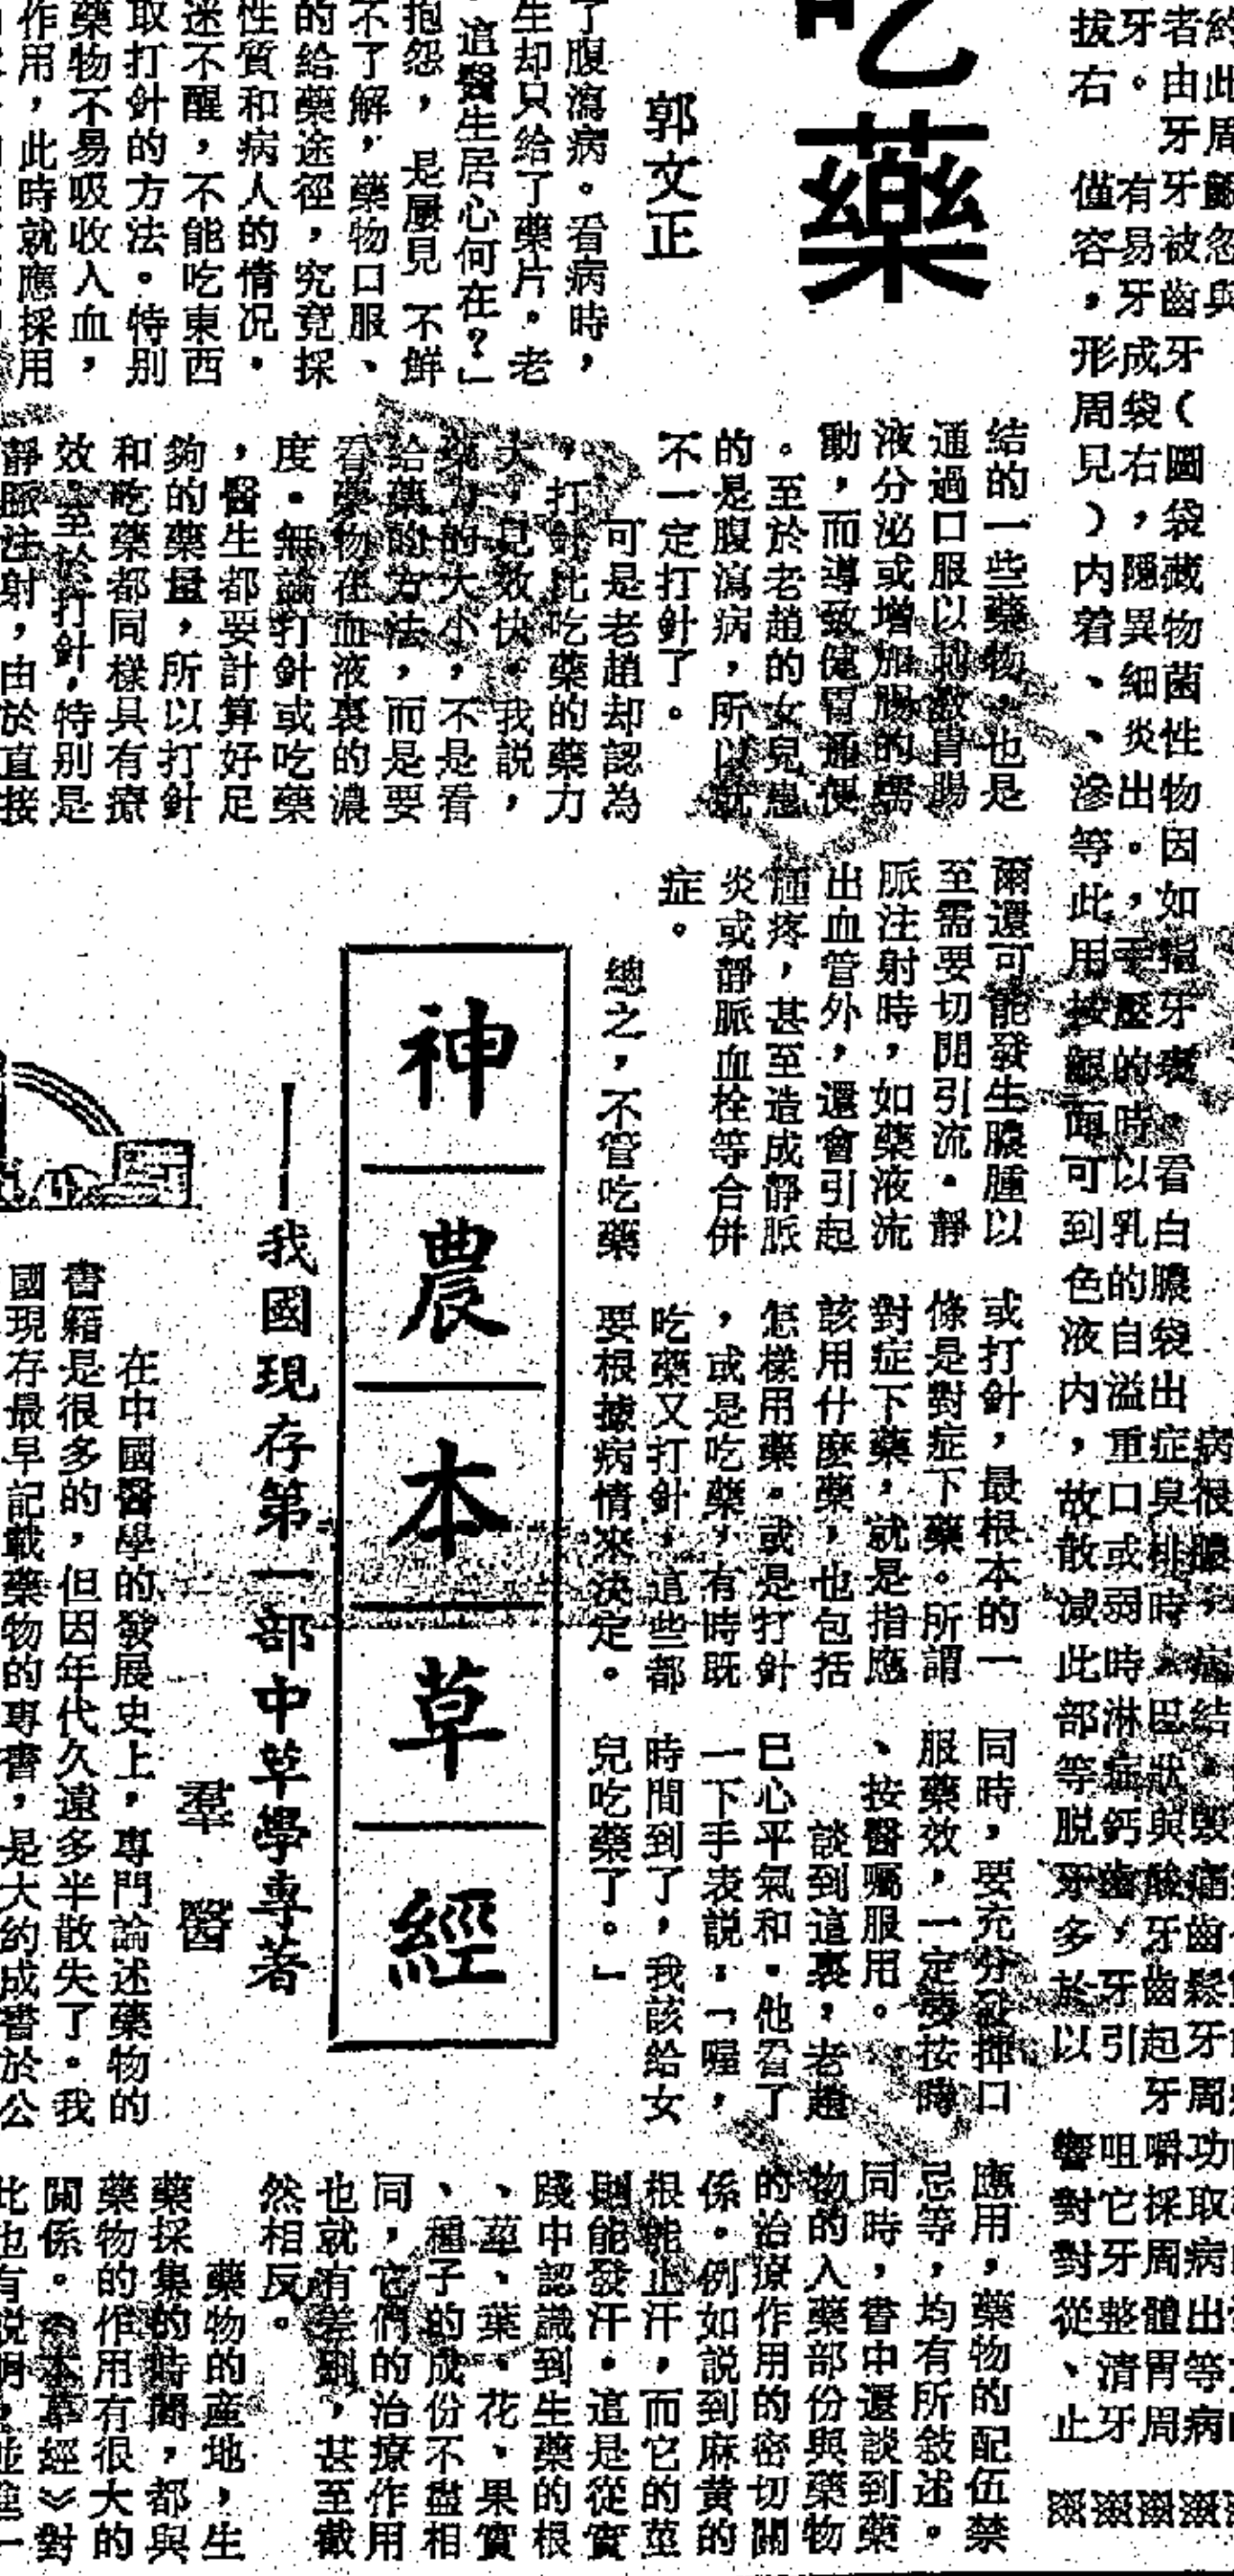 約此周齦忽與
者由牙牙被齒牙（圖袋藏物菌性物因如指牙表，看白膿袋出症臭
牙。有易牙成袋右，隱異細炎出。，手壓的時以乳的自溢重口或弱時淋
拔右僅容，形周見）内着、、滲等此用按齦面可到色液内，故散減此部等脫牙多於以
病很膿
牙齒起牙嚼採周體胃周
牙引咀它牙整清牙
功取病出等病
響對對從、止
吃藥
郭文正
了腹瀉病。看病時，
生却只給了藥片。老
這醫生居心何在？」
抱怨，是屢見不鮮
不了解，藥物口服、
的給藥途徑，究竟採
性質和病人的情況．
迷不醒，不能吃東西
取打針的方法。特別
藥物不易吸收入血，
作用，此時就應採用
結的一些藥物，也是
通過口服以刺激胃腸
液分泌或增加腸的蠕
動，而導致健胃通便
。至於老趙的女兒患
的是腹瀉病，所以就
不一定打針了。
可是老趙却認為
，打針比吃藥的藥力
大，見效快．我説，
藥力的大小，不是看
給藥的方法，而是要
看藥物在血液裏的濃
度．無論打針或吃藥
，醫生都要計算好足
夠的藥量，所以打針
和吃藥都同樣具有療
效．至於打針，特別是
靜脈注射，由於直接
爾還可能發生膿腫以
至需要切開引流．靜
脈注射時，如藥液流
出血管外，還會引起
腫疼，甚至造成靜脈
炎或靜脈血栓等合併
症。
總之，不管吃藥
或打針，最根本的一
條是對症下藥。所謂
對症下藥，就是指應
該用什麼藥，也包括
怎樣用藥．或是打針
，或是吃藥，有時既
吃藥又打針，這些都
要根據病情來決定。
同時，要充分發揮口
服藥效，一定要按時
、按醫囑服用。
談到這裏，老趙
已心平氣和．他看了
一下手表説：「喔，
時間到了，我該給女
兒吃藥了。」
神農本草經
——我國現存第一部中草學專著
羣醫
在中國醫學的發展史上，專門論述藥物的
書籍是很多的，但因年代久遠多半散失了。我
國現存最早記載藥物的專書，是大約成書於公
應用，藥物的配伍禁
忌等，均有所敍述。
同時，書中還談到藥
物的入藥部份與藥物
的治療作用的密切關
係．例如説到麻黄的
根能止汗，而它的莖
則能發汗．這是從實
踐中認識到生藥的根
、莖、葉、花、果實
、種子的成份不盡相
同，它們的治療作用
也就有差別，甚至截
然相反。
藥物的產地，生
藥採集的時間，都與
藥物的作用有很大的
關係。《本草經》對
此也有説明，並進一